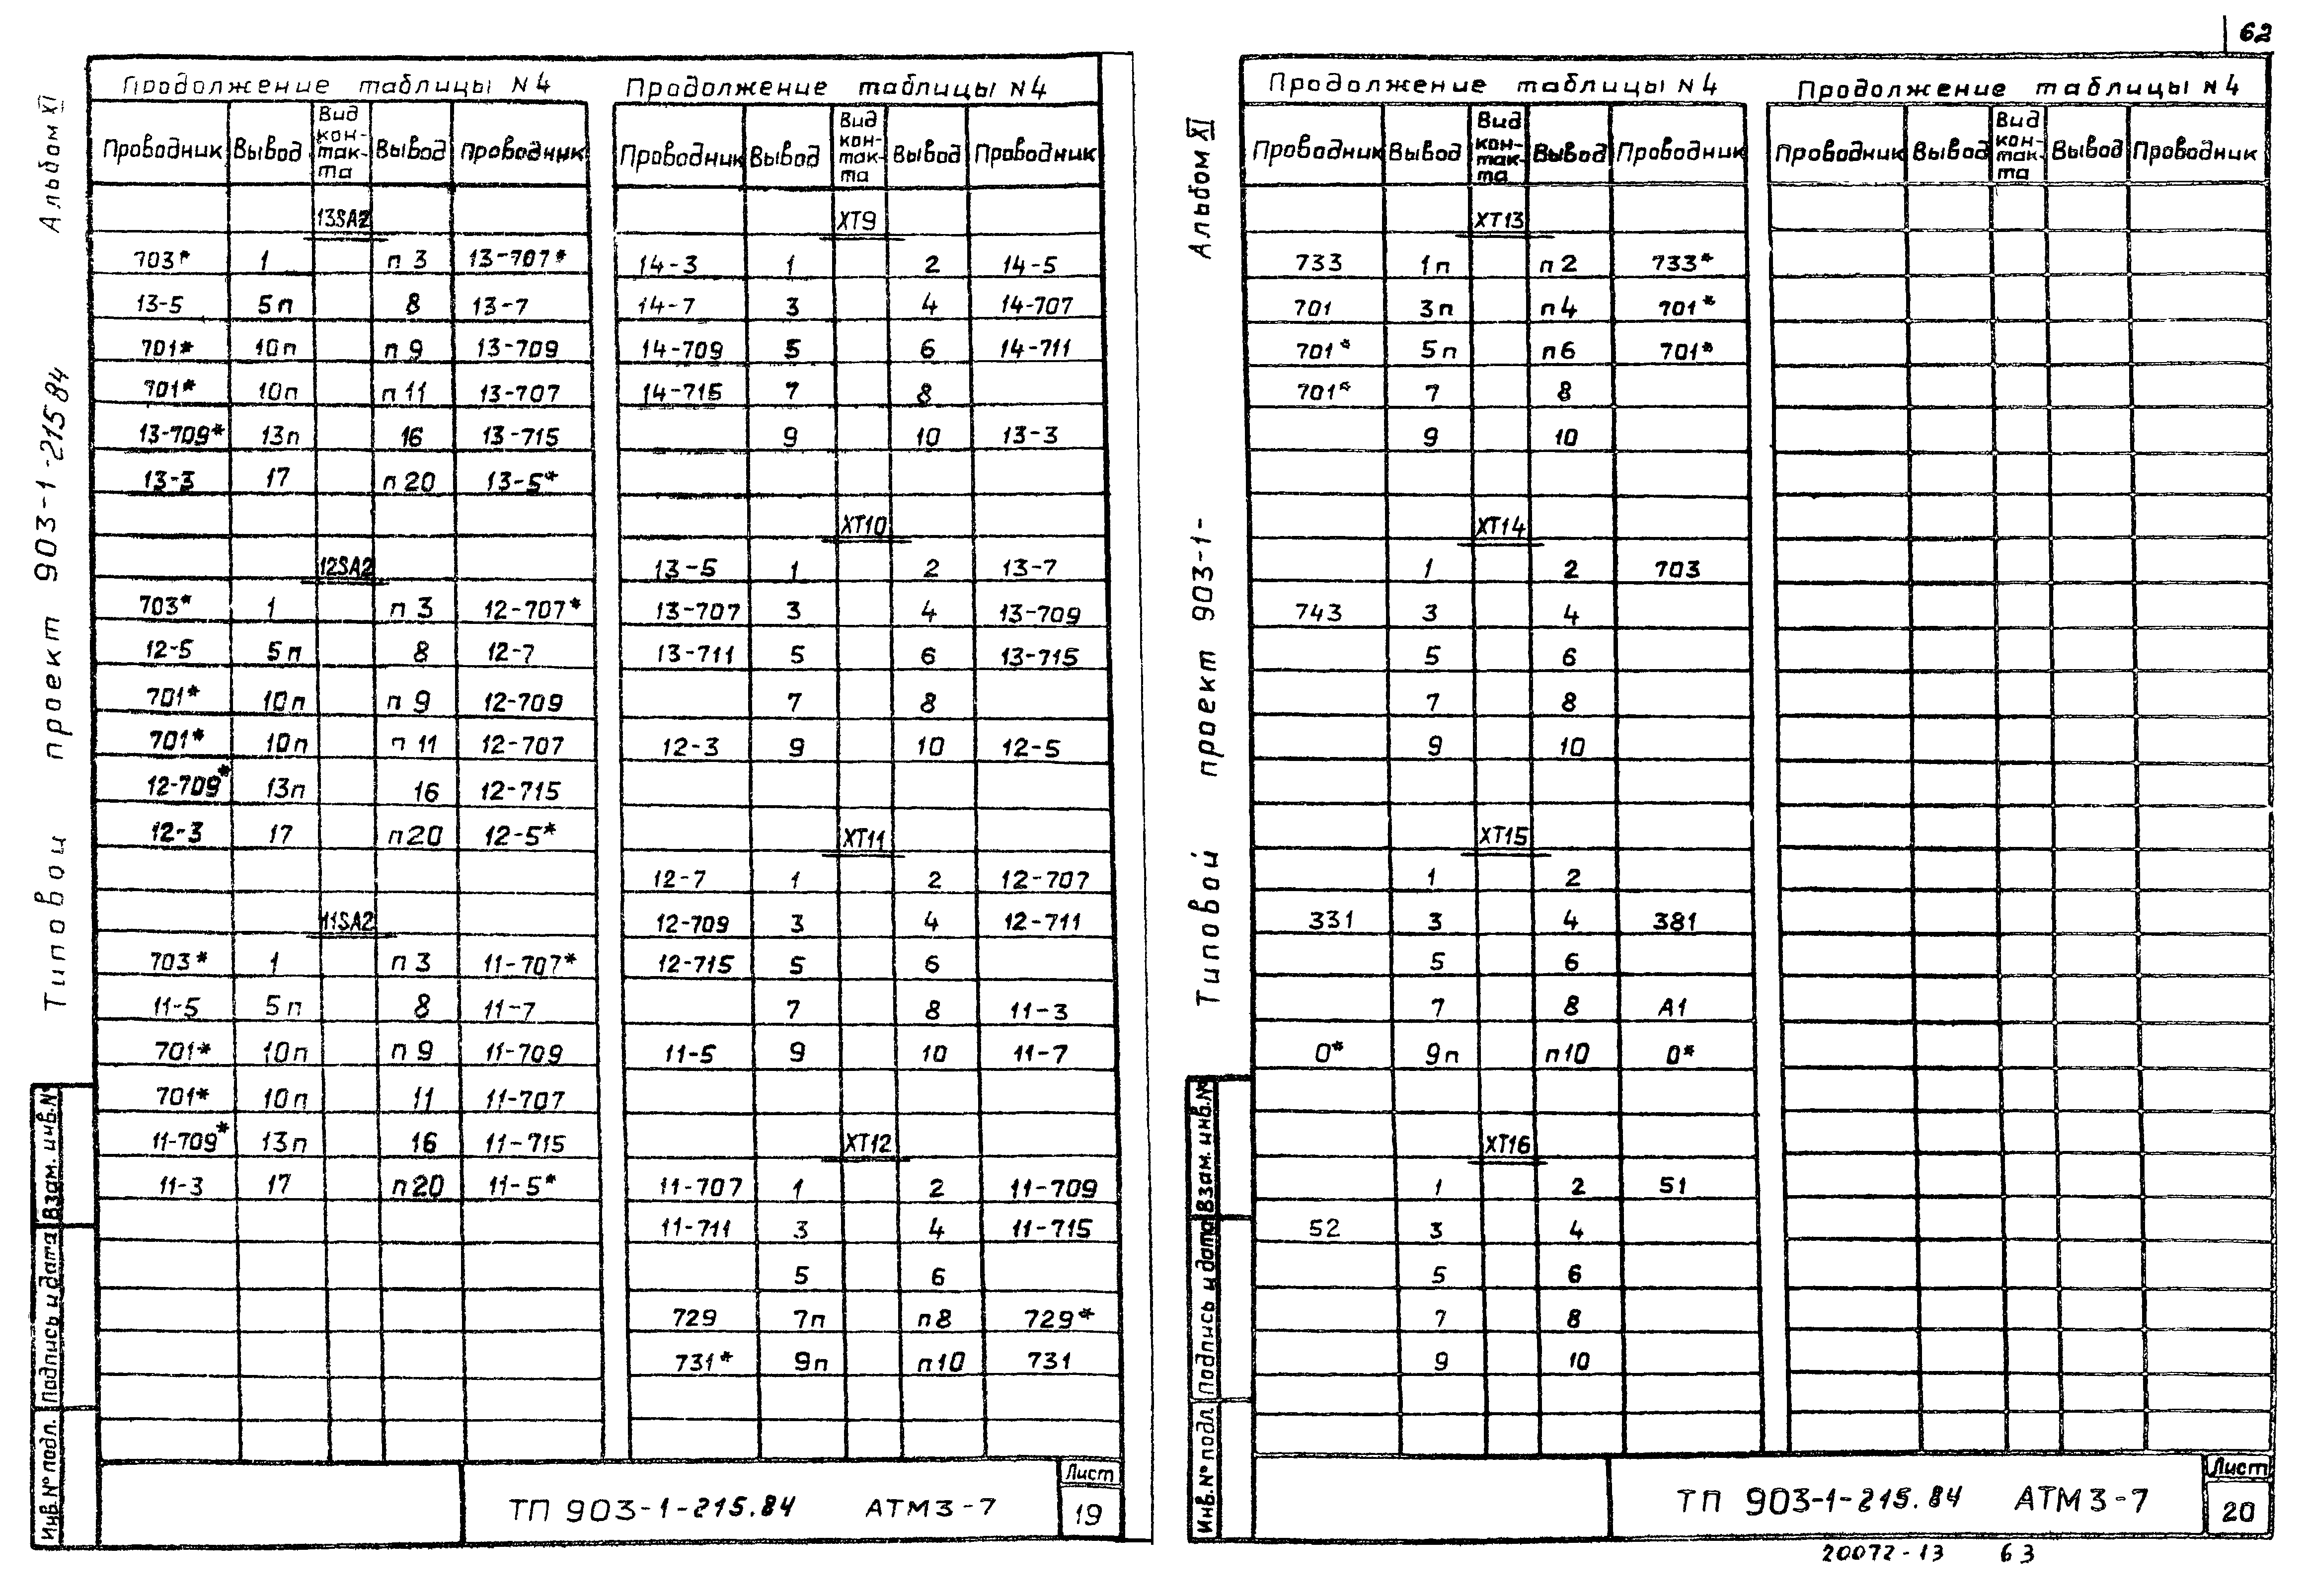 62
Альбом XI
Типовой проект 903-1-215 84
Продолжение таблицы N4
Проводник Вывод Вид кон-так-та Вывод Проводник
13SA2
703* 1 п 3 13-707*
13-5 5п 8 13-7
701* 10п п 9 13-709
701* 10п п 11 13-707
13-709* 13п 16 13-715
13-3 17 п 20 13-5*
12SA2
703* 1 п 3 12-707*
12-5 5п 8 12-7
701* 10п п 9 12-709
701* 10п п 11 12-707
12-709* 13п 16 12-715
12-3 17 п20 12-5*
11SA2
703* 1 п 3 11-707*
11-5 5п 8 11-7
701* 10п п 9 11-709
701* 10п 11 11-707
11-709* 13п 16 11-715
11-3 17 п20 11-5*
Продолжение таблицы N4
Проводник Вывод Вид кон-так-та Вывод Проводник
XT9
14-3 1 2 14-5
14-7 3 4 14-707
14-709 5 6 14-711
14-715 7 8
9 10 13-3
XT10
13-5 1 2 13-7
13-707 3 4 13-709
13-711 5 6 13-715
7 8
12-3 9 10 12-5
XT11
12-7 1 2 12-707
12-709 3 4 12-711
12-715 5 6
7 8 11-3
11-5 9 10 11-7
XT12
11-707 1 2 11-709
11-711 3 4 11-715
5 6
729 7п п8 729*
731* 9п п10 731
Взам. инв.N
Подпись и дата
Инв.N° подл.
ТП 903-1-215.84 АТМ3-7
Лист
19
Альбом XI
Типовой проект 903-1-
Продолжение таблицы N4
Проводник Вывод Вид кон-так-та Вывод Проводник
XT13
733 1п п2 733*
701 3п п4 701*
701* 5п п6 701*
701* 7 8
9 10
XT14
1 2 703
743 3 4
5 6
7 8
9 10
XT15
1 2
331 3 4 381
5 6
7 8 A1
0* 9п п10 0*
XT16
1 2 51
52 3 4
5 6
7 8
9 10
Продолжение таблицы N4
Проводник Вывод Вид кон-так-та Вывод Проводник
Взам. инв.N
Подпись и дата
Инв.N° подл
ТП 903-1-215.84 АТМ3-7
Лист
20
20072-13 63